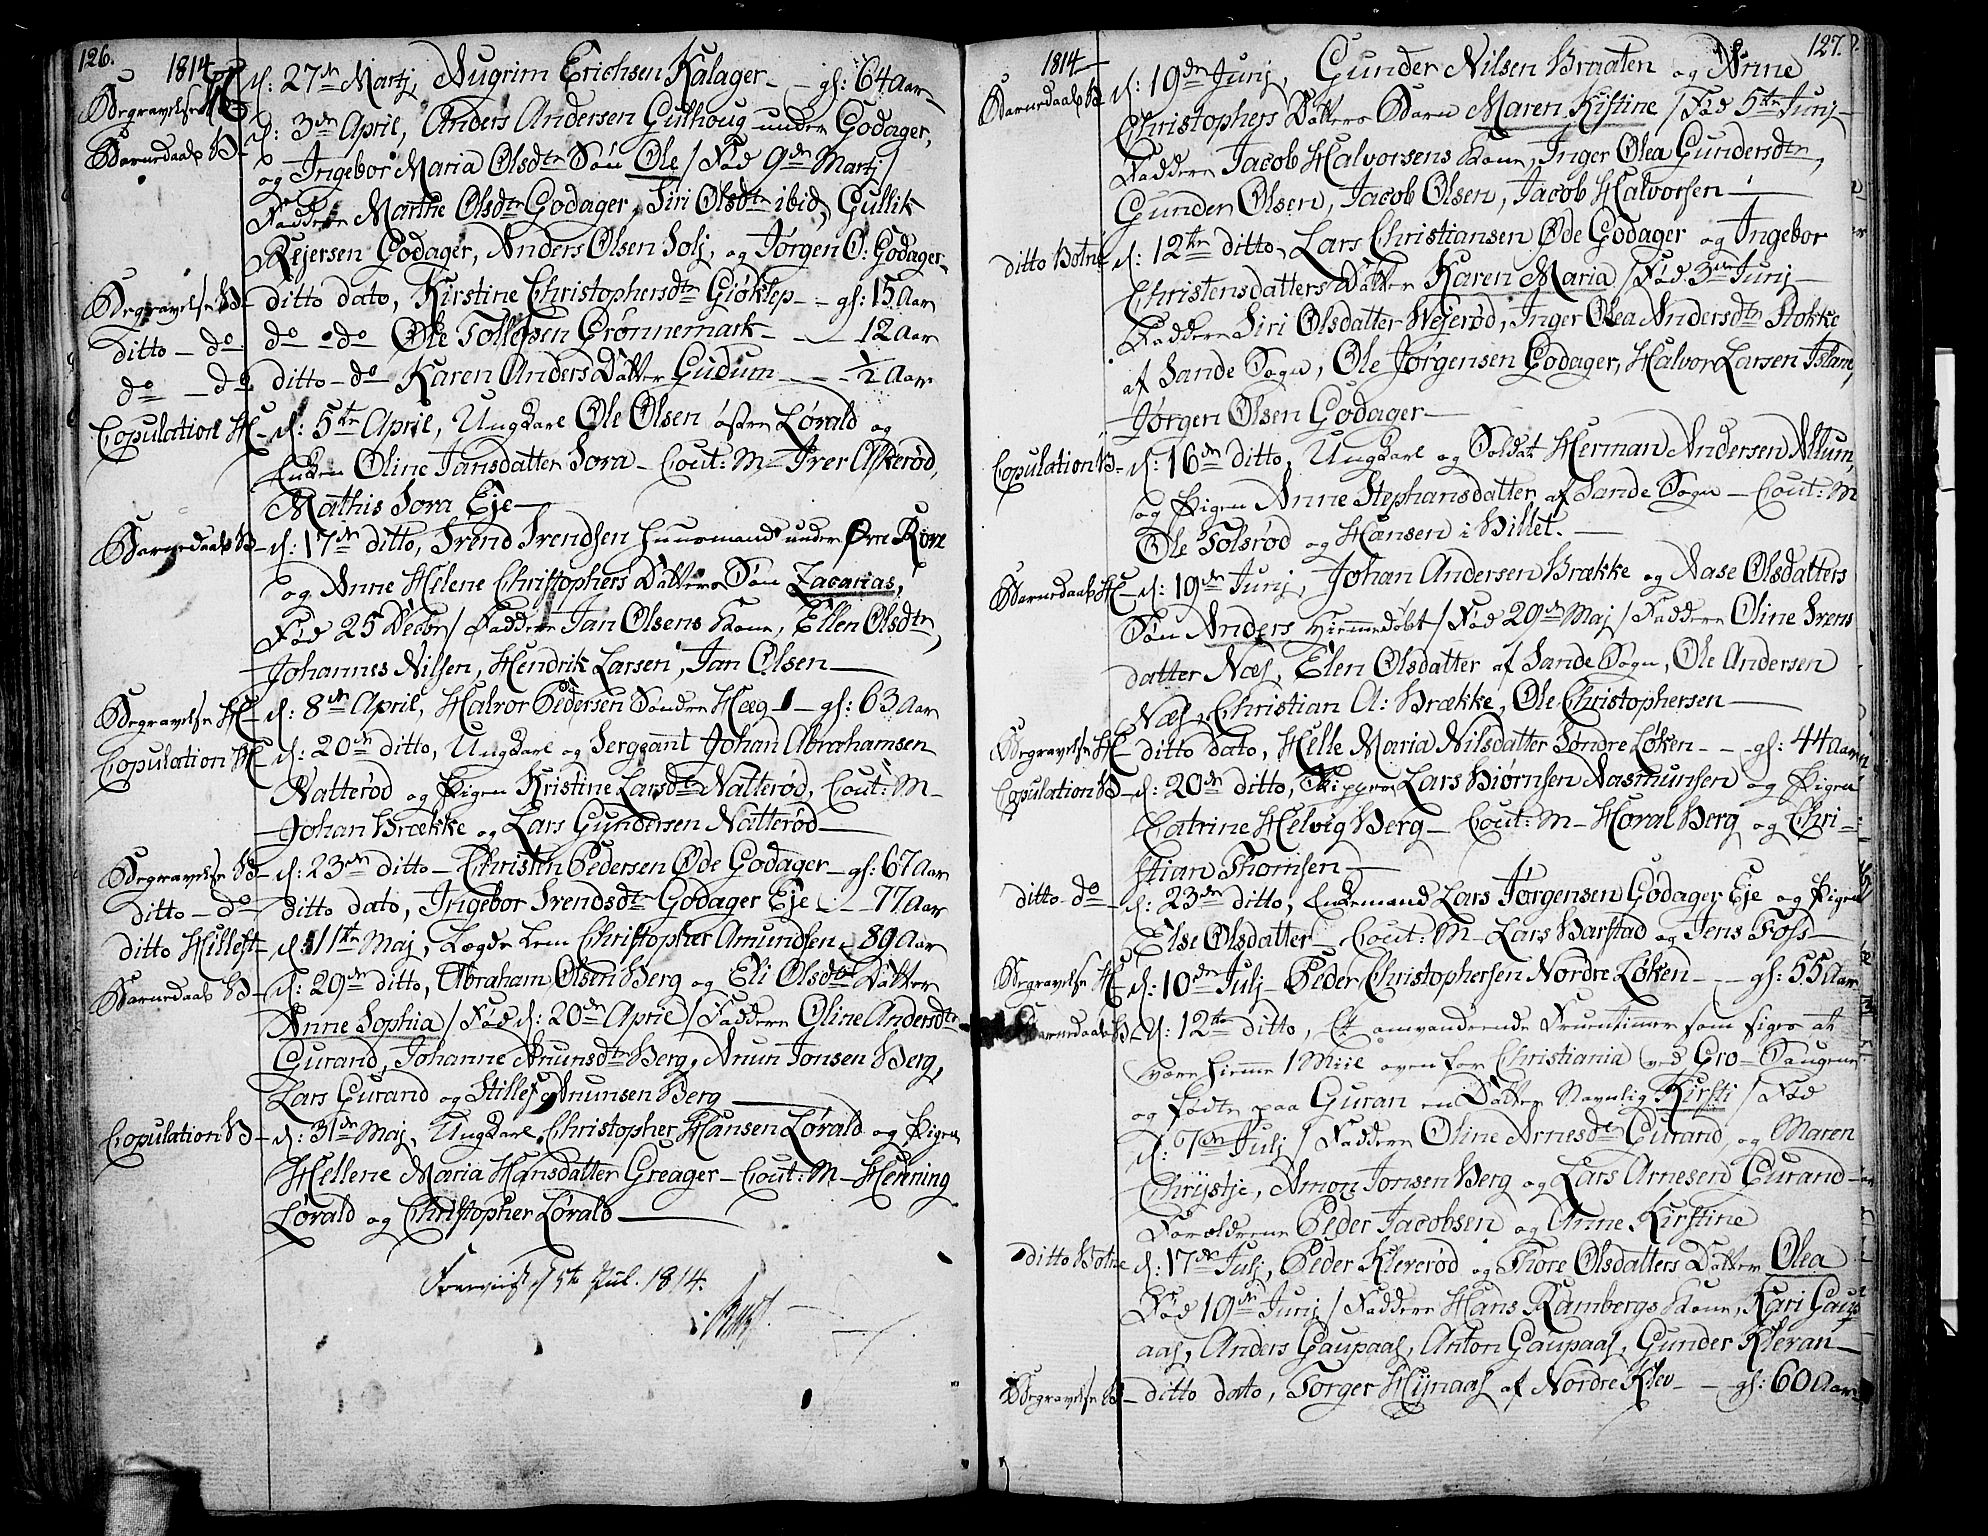 126.
1814
Begravelse H. d: 27de Martj, Augrim Erichsen Kalager - - gl: 64 Aar -
Barnedaab B - d: 3de April, Anders Andersen Gulhoug under Godager,
og Ingebor Maria Olsdtr Søn Ole / Fød 9de Martj /
Faddere Marthe Olsdtr Godager, Siri Olsdtr ibid, Gullik
Rejersen Godager, Anders Olsen Solj, og Jørgen O: Godager -
Begravelse B - ditto dato, Kirstine Christophersdtr Giøklep - - gl: 15 Aar
ditto - do do - do Ole Tollefsen Grønnemark - - - 12 Aar
do - do ditto - do Karen Anders Datter Gudum - - - 1/2 Aar
Copulation H - d: 5te April, Ungkarl Ole Olsen østre Lørald og
Enken Oline Jansdatter Sora - Cout: M - Iver Askerød,
Mathis Sora Eje -
Barnedaab B - d: 17de ditto, Svend Svendsen Huusmand under Øvre Røre
og Anne Helene Christophers Datters Søn Zacarias,
Fød 25 Decbr / Faddere Jan Olsens Kone, Ellen Olsdtr,
Johannes Nilsen, Hendrik Larsen, Jan Olsen -
Begravelse H - d: 8de April, Halvor Pedersen Søndre Hæg - gl: 63 Aar
Copulation H - d: 20de ditto, Ungkarl og Sergiant Johan Abrahamsen
Natterød og Pigen Kristine Larsdtr Natterød, Cout: M -
Johan Brække og Lars Gundersen Natterød -
Begravelse B - d: 23de ditto - Christen Pedersen Øde Godager - gl: 67 Aar
ditto - do - ditto dato, Ingebor Svendsdtr Godager Eje - - 77 Aar
ditto Hillest - d: 11te Maj, Lægds Lem Christopher Amundsen - 89 Aar
Barnedaab B - d: 29de ditto, Abraham Olsen Berg og Eli Olsdtr Datter
Anne Sophia / Fød d: 20de April / Faddere Oline Andersdtr
Gurand, Johanne Anunsdtr Berg, Anun Jonsen Berg,
Lars Gurand og Stillef Anunsen Berg -
Copulation B - d: 31te Maj, Ungkarl Christopher Hansen Lørald og Pigen
Hellene Maria Hansdatter Greager - Cout: M - Henning
Lørald og Christopher Lørald -
d 5te Jul. 1814.
127.
1814
Barnedaab B - d: 19de Junj, Gunder Nilsen Braaten og Anne
Christophers Datters Barn Maren Kistine / Fød 5te Junj -
Faddere Jacob Halvorsens Kone, Inger Olea Gundersdtr,
Gunder Olsen, Jacob Olsen, Jacob Halvorsen -
ditto Botne d: 12te ditto, Lars Christiansen Øde Godager og Ingebor
Christensdatters Datter Karen Maria / Fød 3de Junj -
Faddere Siri Olsdatter Wejerød, Inger Olea Andersdtr Stokke
af Sande Sogn, Ole Jørgensen Godager, Halvor Larsen Island,
Jørgen Olsen Godager -
Copulation B - d: 16de ditto, Ungkarl og Soldat Herman Andersen Allum,
og Pigen Anne Stephansdatter af Sande Sogn - Cout: M
Ole Tolsrød og Hansen i Billet. -
Barnedaab H - d: 19de Junj, Johan Andersen Brække og Aase Olsdatters
Søn Anders Hiemmedøbt / Fød 29de Maj / Faddere Oline Svens
datter Næs, Elen Olsdatter af Sande Sogn, Ole Andersen
Næs, Christian A: Brække, Ole Christophersen -
Begravelse H - ditto dato, Helle Maria Nilsdatter Søndre Løken - - - gl: 44 Aar
Copulation B - d: 20de ditto, Skipper Lars Biørnsen Aasmunsen og Pigen
Catrine Helvig Berg - Cout: M - Horal Berg og Chri-
stian Thomsen -
ditto - do - d: 23de ditto, Enkemand Lars Jørgensen Godager Eje og Pigen
Else Olsdatter - Cout: M - Lars Barstad og Jens Foss -
Begravelse H - d: 10de Julj - Peder Christophersen Nordre Løken - - - gl: 55 Aar
Barnedaab B - d: 12te ditto, Et omvandrende Fruentimer som siges at
være hiemme 1 Miil oven for Christiania ved Gro-Saugene
og fødte paa Guran en Datter Navnlig Kirsti / Fød
d: 7de Julj / Faddere Oline Arnesdtr Gurand, og Maren
Chrijstje, Amon Jonsen Berg og Lars Arnesen Gurand -
Forældrene Peder Jacobsen og Anne Kirstine
ditto Botne d: 17de Julj, Peder Kleverød og Thore Olsdatters Datter Olea
Fød 19de Junj / Faddere Hans Rambergs Kone, Kari Gaup
aas, Anders Gaupaas, Anton Gaupaas, Gunder Kleran -
Begravelse B - ditto dato, Torger Hijnaas af Nordre Klev - - gl: 60 Aar -